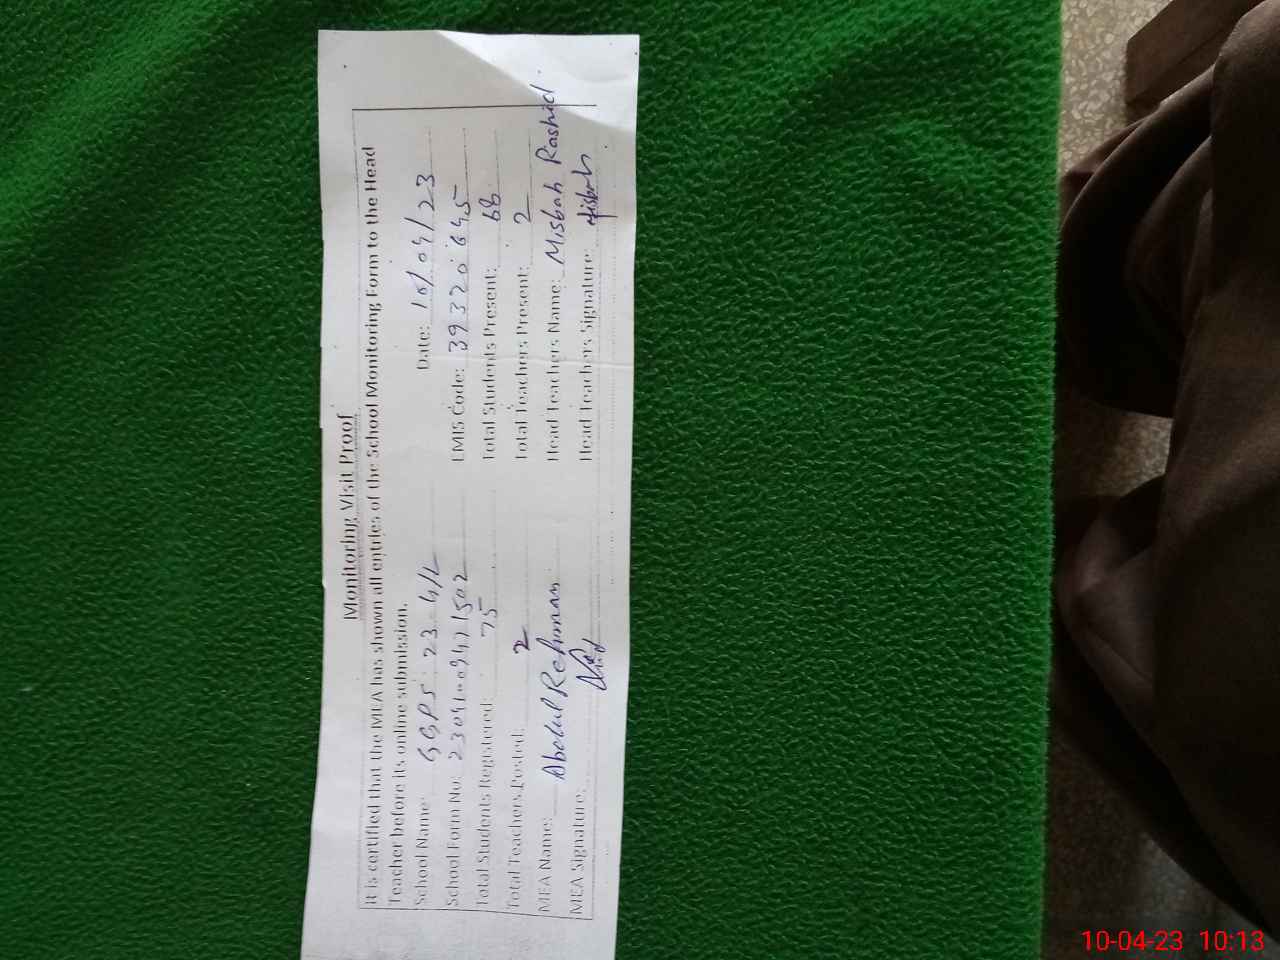 Monitoring Visit Proof
It is certified that the MEA has shown all entries of the School Monitoring Form to the Head
Teacher before its online submission.
School Name: GGPS 23 4/L Date: 10/04/23
School Form No: EMIS Code: 39320645
Total Students Registered: 75 Total Students Present: 68
Total Teachers Posted: 2 Total Teachers Present: 2
MEA Name: Abdul Rehman Head Teachers Name: Misbah Rashid
MEA Signature: Head Teachers Signature: Misbah
10-04-23 10:13